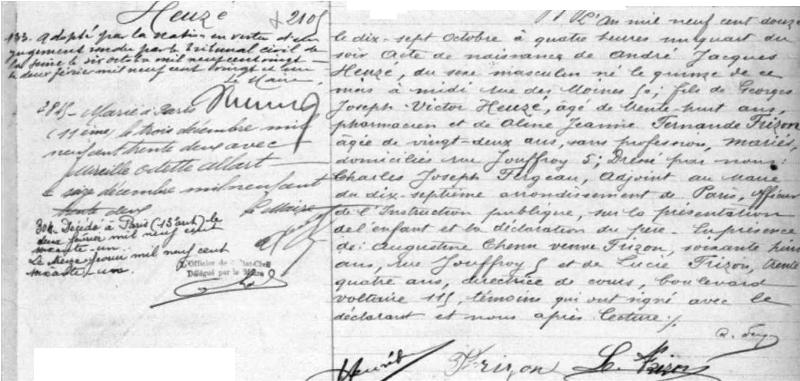 Heuzé
2105
133. adopté par la Nation en vertu d'un
jugement rendu par le Tribunal civil de
la Seine le six octobre mil neuf cent vingt
le deux février mil neuf cent vingt et un
Le Maire
2815 - Marié à Paris
(11ème) le trois décembre mil
neuf cent trente deux avec
Mireille Odette Allart
le seize décembre mil neuf cent
trente deux
le Maire
304. Décédé à Paris (15 arrt) le
deux février mil neuf cent
soixante-un.
Le jour mil neuf cent
soixante-un
L'Officier de l'Etat-Civil
Délégué par le Maire
L'An mil neuf cent douze
le dix-sept Octobre à quatre heures un quart du
soir Acte de naissance de André Jacques
Heuzé, du sexe masculin né le quinze de ce
mois à midi rue des Moines 50; fils de Georges
Joseph Victor Heuzé, âgé de trente huit ans,
pharmacien et de Aline Jeanne Fernande Frizon
âgée de vingt-deux ans, sans profession, mariés,
domiciliés rue Jouffroy 5; Dressé par nous:
Charles Joseph Adjoint au Maire
du dix-septième arrondissement de Paris, officier
de l'Instruction publique, sur la présentation
de l'enfant et la déclaration du père. En présence
de: Augustine Chenu veuve Frizon, soixante huit
ans, rue Jouffroy 5 et de Lucie Frizon, trente
quatre ans, directrice de cours, boulevard
Voltaire 115, témoins qui ont signé avec le
déclarant et nous après lecture ./.
Heuzé Frizon L. Frizon